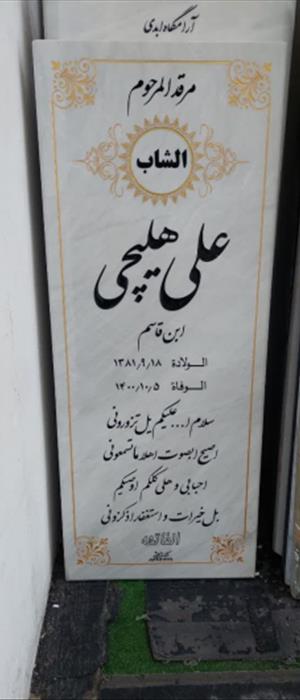 آرامگاه ابدی
مرقد المرحوم
الشاب
علی هلیچی
ابن قاسم
الولادة ۱۳۸۱٫۹٫۱۸
الوفاة ۱۴۰۰٫۱۰٫۵
سلام ا... علیکم یل تزورونی
اصیح ابصوت اهلا ما تسمعونی
احبابی و هلی کلکم اوصیکم
بل خیرات و استغفار اذکرونی
الفاتحه